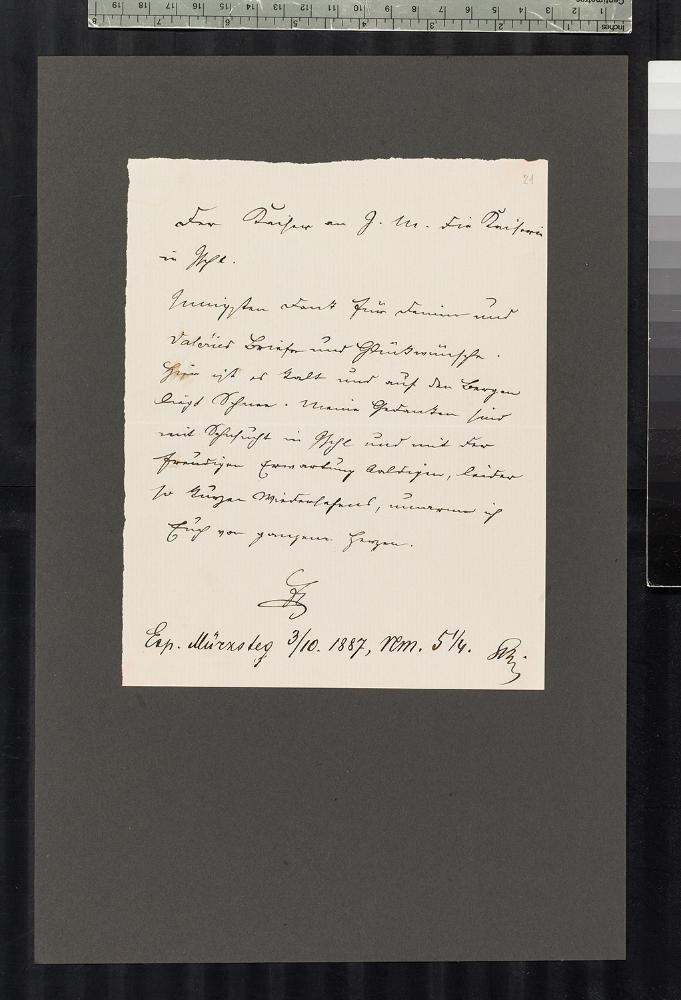 21
Der Kaiser an I. M. die Kaiserin
in Ischl.
Innigsten Dank für Deinen und
Valéries Briefe und Glückwünsche.
Hier ist es kalt und auf den Bergen
liegt Schnee. Meine Gedanken sind
mit Sehnsucht in Ischl und mit der
freudigen Erwartung baldigen, leider
so kurzen Wiedersehens, umarme ich
Euch von ganzem Herzen.
Exp. Mürzsteg 3/10. 1887, Nm. 5 1/4.